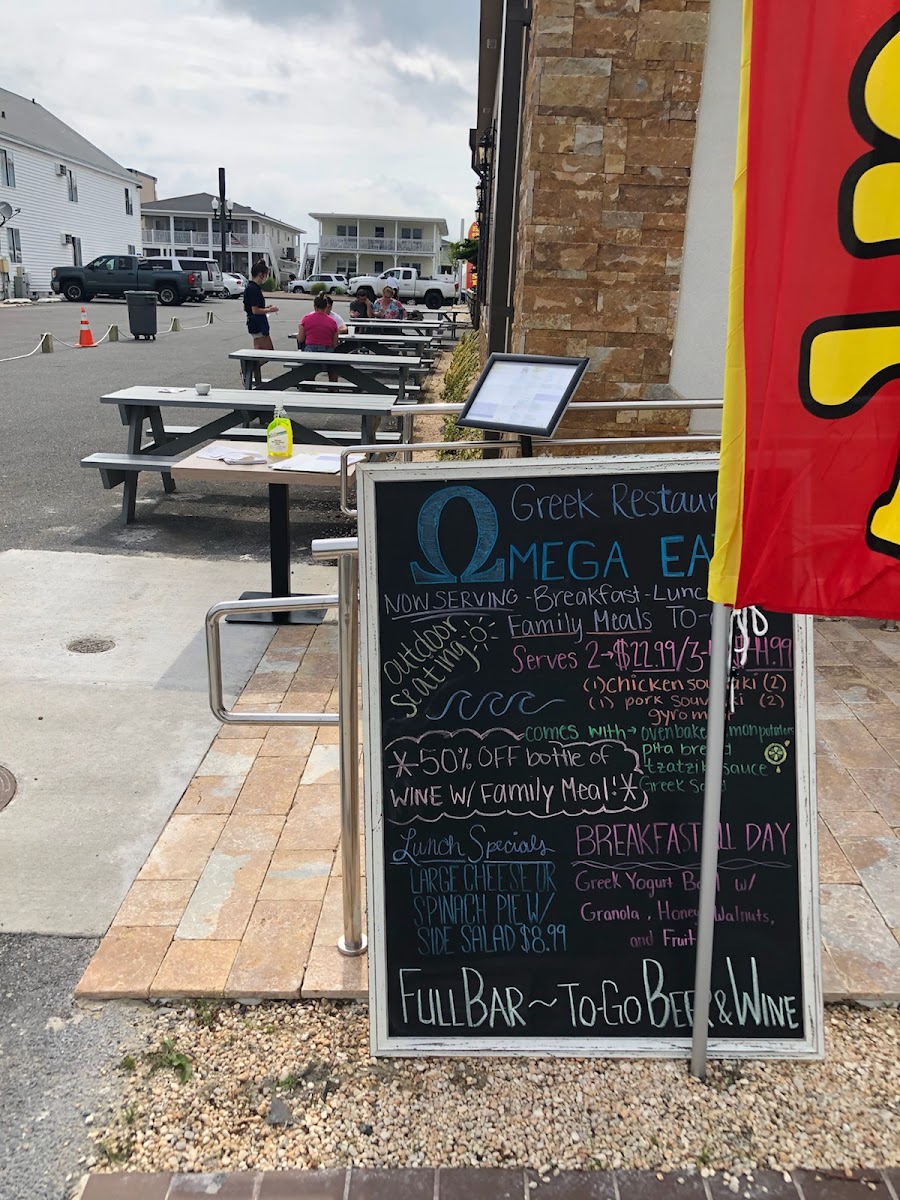 Ω Greek Restaur
OMEGA EA
NOW SERVING - Breakfast - Lunc
outdoor
seating
Family Meals TO-
Serves 2→$22.99/3-4 44.99
(1) chicken souvlaki (2)
(1) pork souvlaki (2)
gyro
comes with→ oven baked lemon potatoes
pita bread
tzatziki sauce
Greek Sal
*50% OFF bottle of
WINE W/ Family Meal!*
Lunch Specials
LARGE CHEESE OR
SPINACH PIE W/
SIDE SALAD $8.99
BREAKFAST ALL DAY
Greek Yogurt Bowl w/
Granola, Honey, Walnuts,
and Fruit
FULL BAR ~ TO-GO BEER & WINE